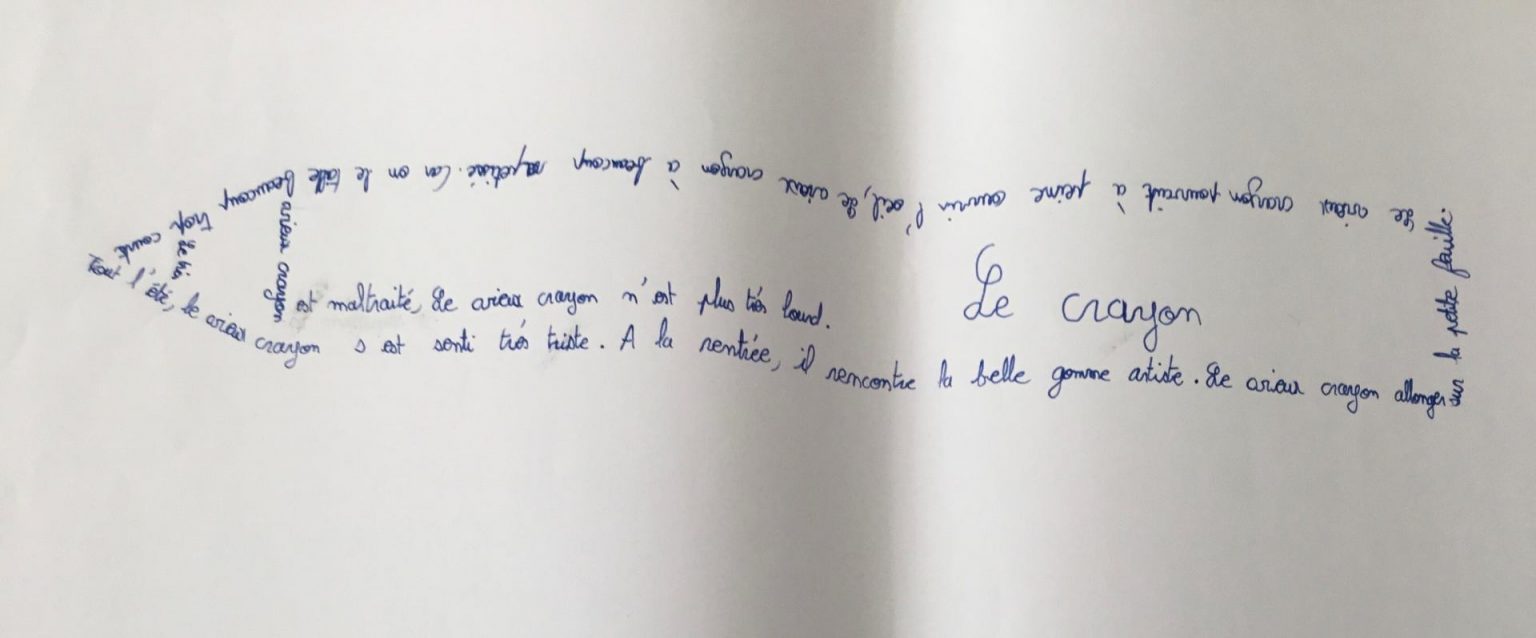 Le crayon
Tout l'été, le vieux crayon s est senti très triste. A la rentrée, il rencontre la belle gomme artiste. Le vieux crayon allonger
sur la petite feuille.
Le vieux crayon pouvait à peine ouvrir l'oeil, Le vieux crayon à beaucoup rapetissé. Car on le taille beaucoup trop court
Le
vieux crayon
est maltraité, Le vieux crayon n'est plus très lourd.